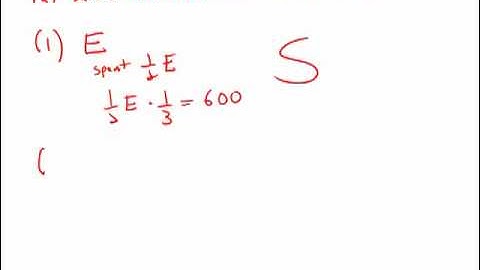 (1) E S
spent 1/2 E
1/2 E · 1/3 = 600
(